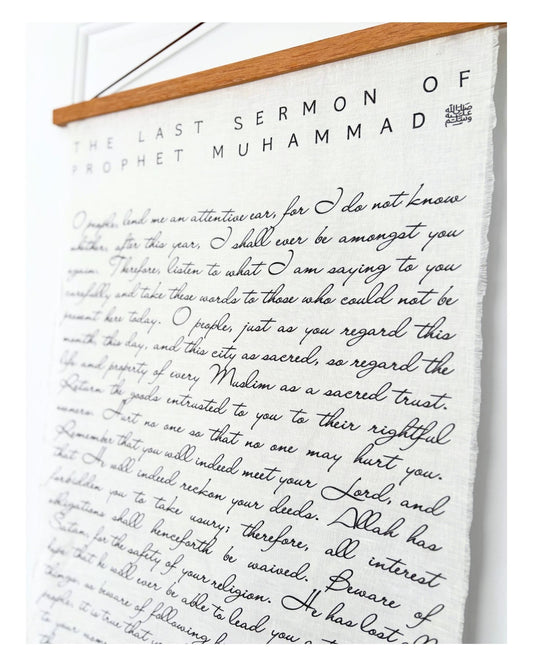 THE LAST SERMON OF
PROPHET MUHAMMAD ﷺ
O people, lend me an attentive ear, for I do not know
whether, after this year, I shall ever be amongst you
again. Therefore, listen to what I am saying to you
carefully and take these words to those who could not be
present here today. O people, just as you regard this
month, this day, and this city as sacred, so regard the
life and property of every Muslim as a sacred trust.
Return the goods entrusted to you to their rightful
owners. Hurt no one so that no one may hurt you.
Remember that you will indeed meet your Lord, and
that He will indeed reckon your deeds. Allah has
forbidden you to take usury; therefore, all interest
obligations shall henceforth be waived. Beware of
Satan, for the safety of your religion. He has lost all
hope that he will ever be able to lead you
things, so beware of following
people, it is true that
to your